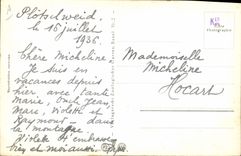 le 15 juillet
1936.
Chère Micheline
Je suis en
vacances depuis
hier, avec tante
Marie, oncle Jean,
Marc, Violette et
Raymond - dans
la montagne
Violette et embrasse
bien et moi aussi
Mademoiselle
Micheline
Hocart